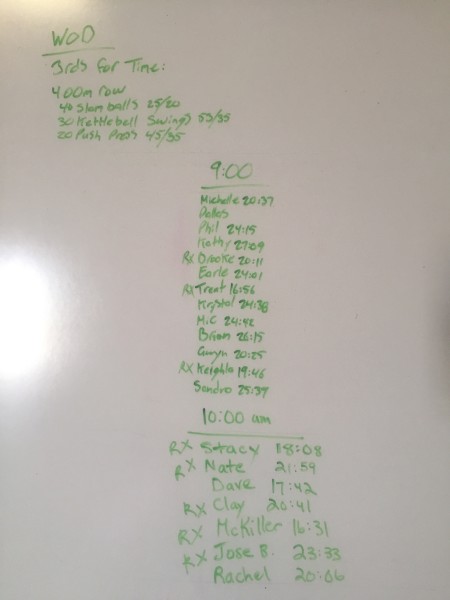 WOD
3rds For Time:
400m row
40 Slam balls 25/20
30 Kettlebell Swings 53/35
20 Push Press 45/35
9:00
Michelle 20:37
Dallas
Phil 24:15
Kathy 27:09
RX Brooke 20:11
Earle 24:01
RX Trent 16:56
Krystal 24:38
Mic 24:52
Brian 26:15
Gwyn 20:25
RX Keighla 19:46
Sandra 25:37
10:00 am
RX Stacy 18:08
RX Nate 21:59
Dave 17:42
RX Clay 20:41
RX McKiller 16:31
RX Jose B. 23:33
Rachel 20:06